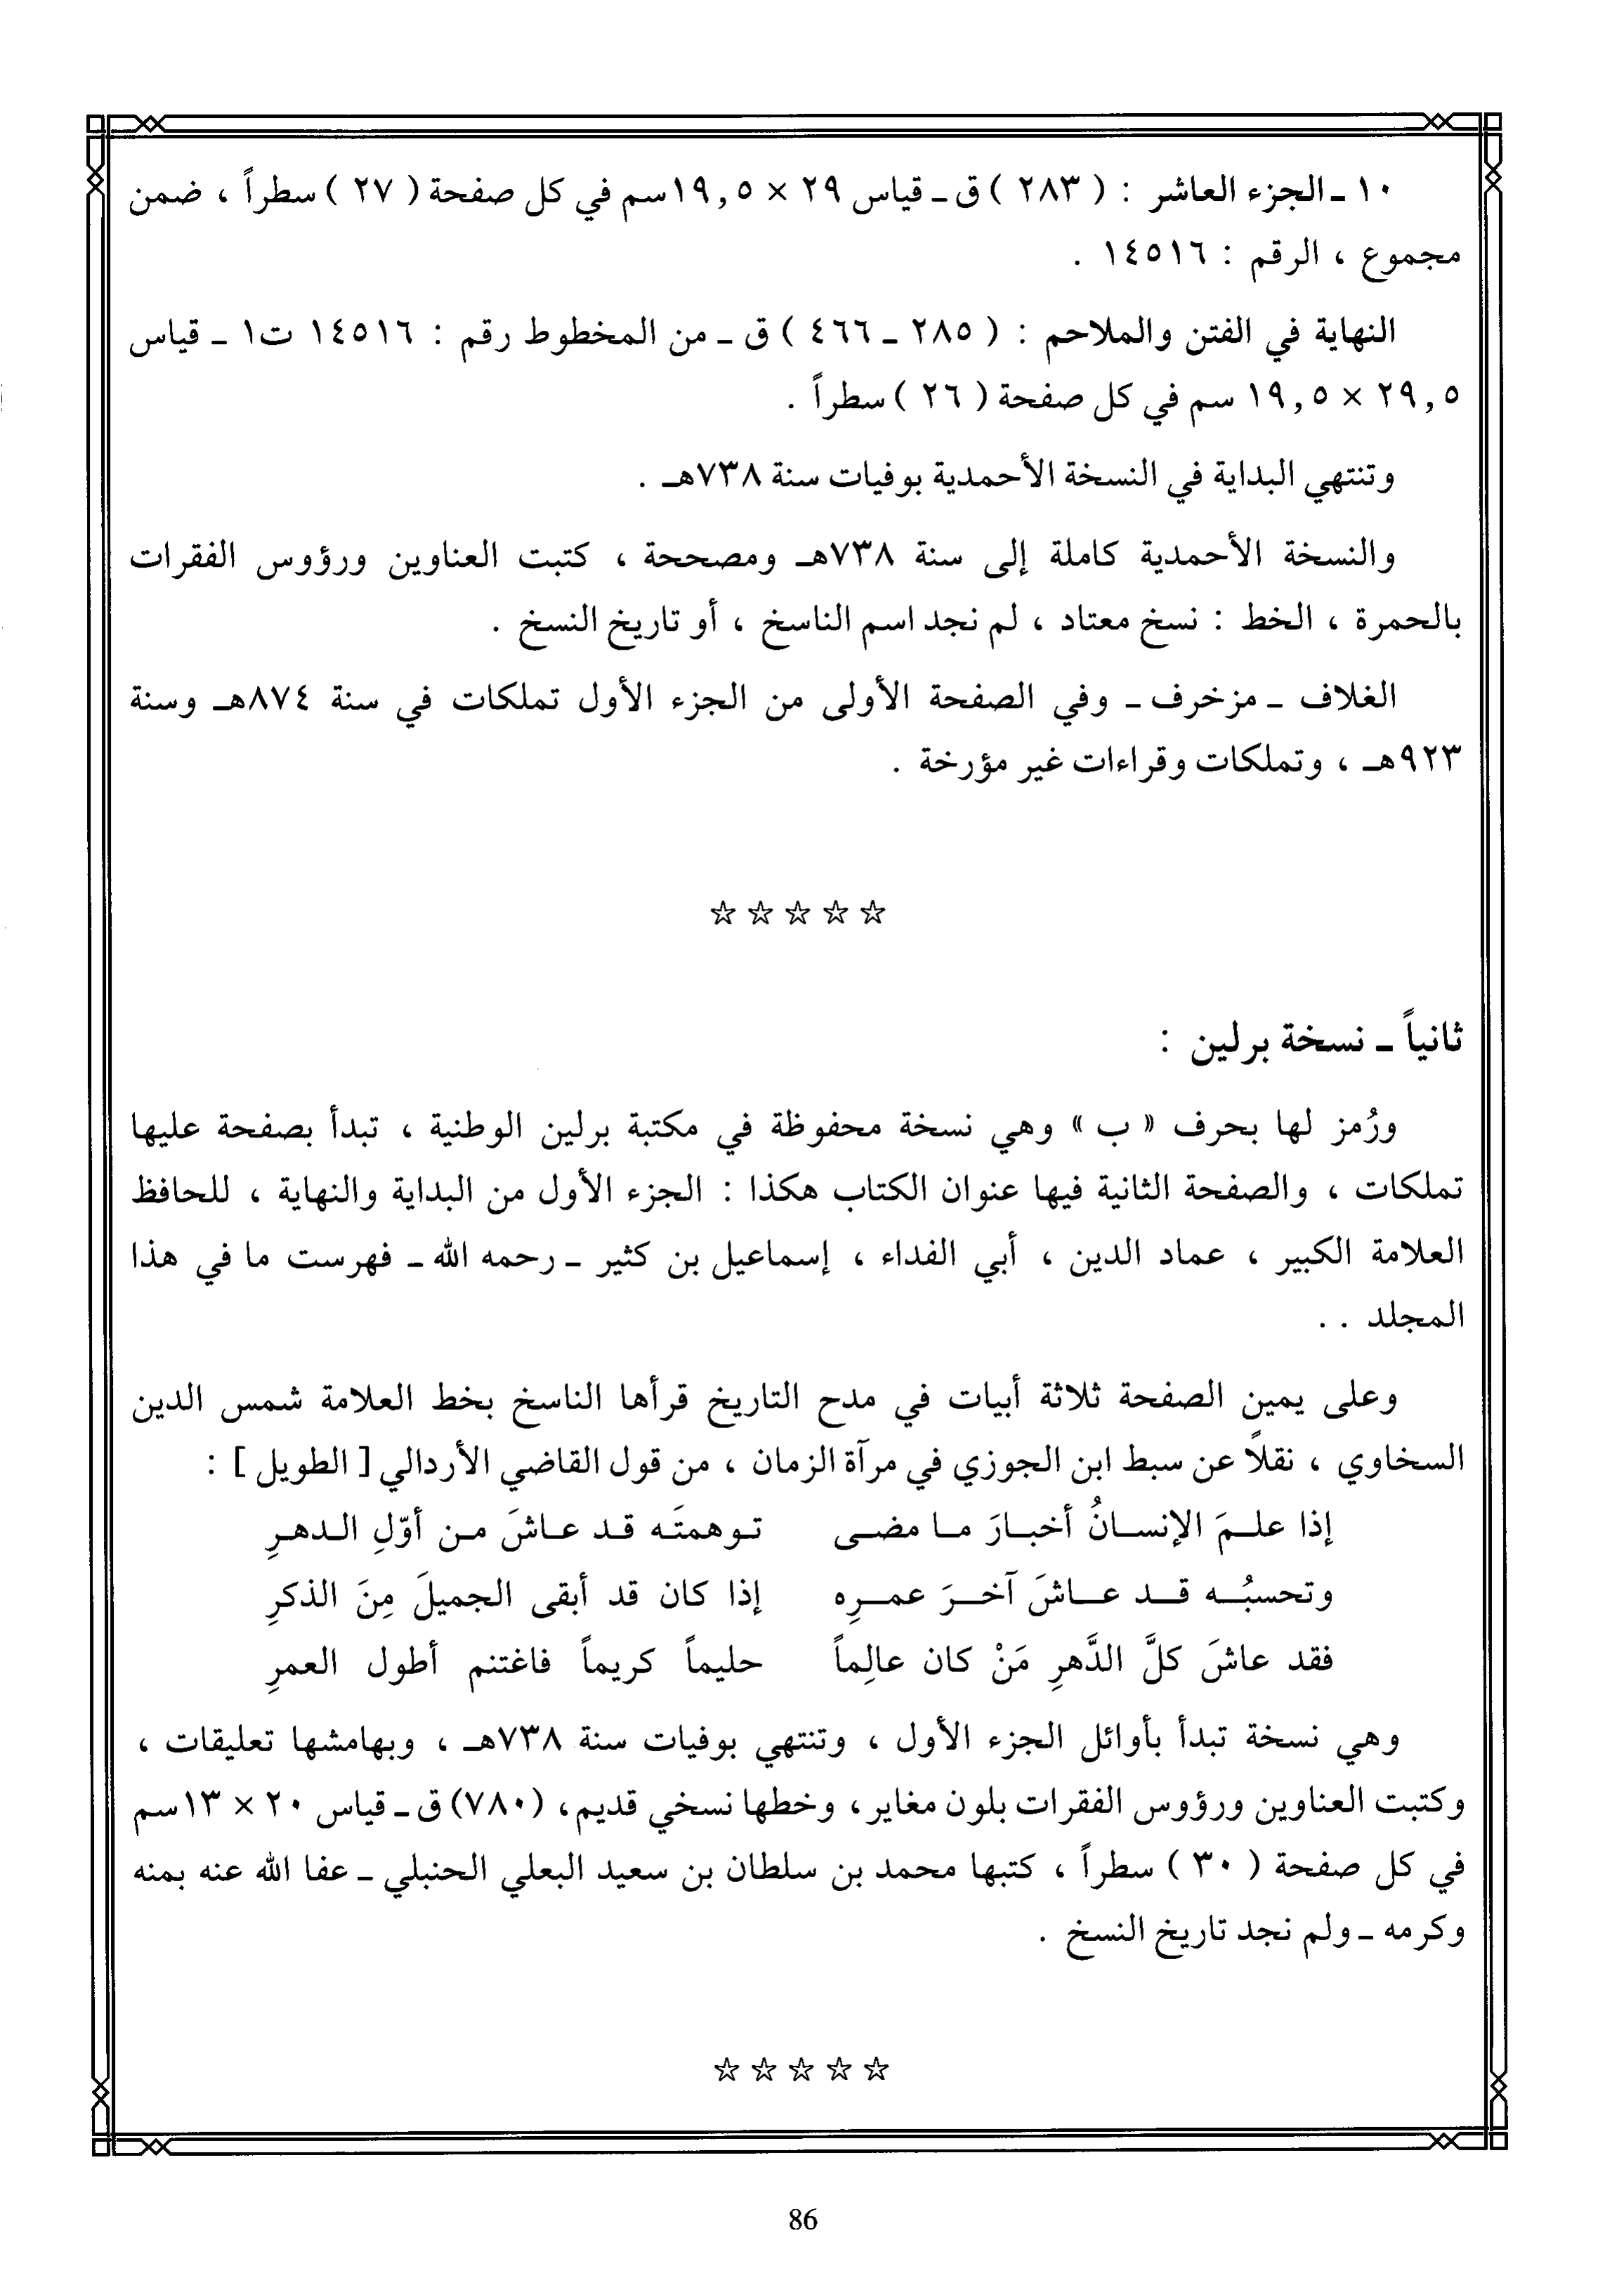 ١٠ ـ الجزء العاشر : ( ٢٨٣ ) ق ـ قياس ٢٩ × ١٩,٥سم في كل صفحة ( ٢٧ ) سطراً ، ضمن
مجموع ، الرقم : ١٤٥١٦ .
النهاية في الفتن والملاحم : ( ٢٨٥ ـ ٤٦٦ ) ق ـ من المخطوط رقم : ١٤٥١٦ ت١ ـ قياس
٢٩,٥ × ١٩,٥ سم في كل صفحة ( ٢٦ ) سطراً .
وتنتهي البداية في النسخة الأحمدية بوفيات سنة ٧٣٨هـ .
والنسخة الأحمدية كاملة إلى سنة ٧٣٨هـ ومصححة ، كتبت العناوين ورؤوس الفقرات
بالحمرة ، الخط : نسخ معتاد ، لم نجد اسم الناسخ ، أو تاريخ النسخ .
الغلاف ـ مزخرف ـ وفي الصفحة الأولى من الجزء الأول تملكات في سنة ٨٧٤هـ وسنة
٩٢٣هـ ، وتملكات وقراءات غير مؤرخة .
☆ ☆ ☆ ☆ ☆
ثانياً ـ نسخة برلين :
ورُمز لها بحرف « ب » وهي نسخة محفوظة في مكتبة برلين الوطنية ، تبدأ بصفحة عليها
تملكات ، والصفحة الثانية فيها عنوان الكتاب هكذا : الجزء الأول من البداية والنهاية ، للحافظ
العلامة الكبير ، عماد الدين ، أبي الفداء ، إسماعيل بن كثير ـ رحمه الله ـ فهرست ما في هذا
المجلد . .
وعلى يمين الصفحة ثلاثة أبيات في مدح التاريخ قرأها الناسخ بخط العلامة شمس الدين
السخاوي ، نقلاً عن سبط ابن الجوزي في مرآة الزمان ، من قول القاضي الأردالي [ الطويل ] :
إذا علـمَ الإنسـانُ أخبـارَ مـا مضـى تـوهمتَـه قـد عـاشَ مـن أوّلِ الـدهـرِ
وتحسبُـه قـد عـاشَ آخـرَ عمـرِه إذا كان قد أبقى الجميلَ مِنَ الذكرِ
فقد عاشَ كلَّ الدَّهرِ مَنْ كان عالِماً حليماً كريماً فاغتنم أطول العمرِ
وهي نسخة تبدأ بأوائل الجزء الأول ، وتنتهي بوفيات سنة ٧٣٨هـ ، وبهامشها تعليقات ،
وكتبت العناوين ورؤوس الفقرات بلون مغاير، وخطها نسخي قديم، (٧٨٠) ق ـ قياس ٢٠ × ١٣سم
في كل صفحة ( ٣٠ ) سطراً ، كتبها محمد بن سلطان بن سعيد البعلي الحنبلي ـ عفا الله عنه بمنه
وكرمه ـ ولم نجد تاريخ النسخ .
☆ ☆ ☆ ☆ ☆
86